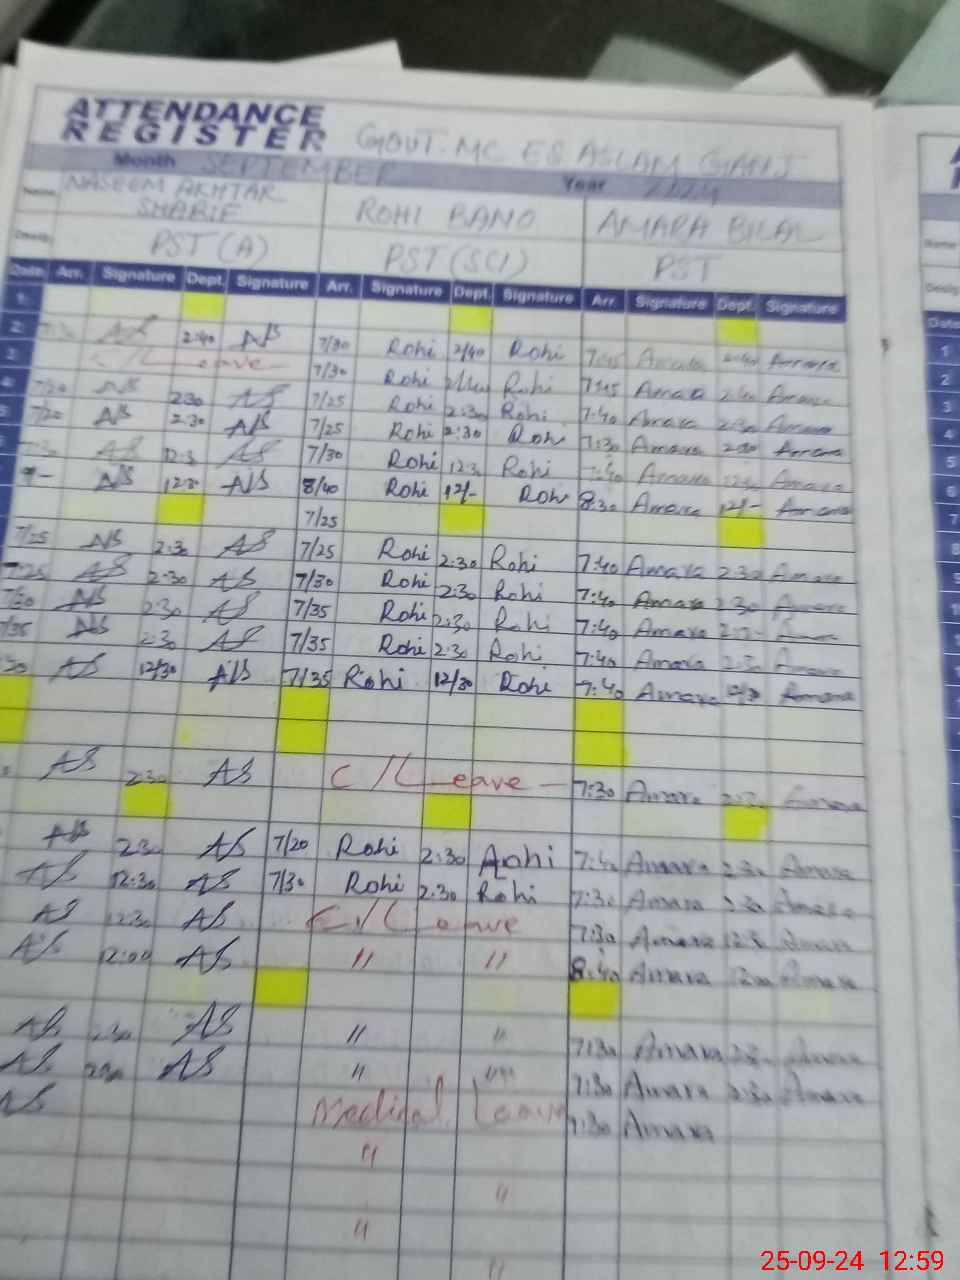 ATTENDANCE
REGISTER GOVT. MC ES ASLAM GANJ
Month SEPTEMBER Year 2024
Name NASEEM AKHTAR ROHI BANO AMARA BILAL
SHARIF
PST (A) PST (SCI) PST
Date Arr. Signature Dept. Signature Arr. Signature Dept. Signature Arr. Signature Dept. Signature
1
2 AS 2:40 AS 7/30 Rohi 2/40 Rohi 7:45 Amara 2:40 Amara
3 C/Leave 7/30 Rohi Rohi 7:45 Amara 2:40 Amara
4 7/20 AS 2:30 AS 7/25 Rohi 2:30 Rohi 7:40 Amara 2:30 Amara
5 7/20 AS 2:30 AS 7/25 Rohi 2:30 Rohi 7:30 Amara 2:30 Amara
AS 12:30 AS 7/30 Rohi 12:30 Rohi 7:40 Amara Amara
AS 12:30 AS 8/40 Rohi 12/- Rohi 8:30 Amara 12/- Amara
7/25
7/25 AS 2:30 AS 7/25 Rohi 2:30 Rohi 7:40 Amara 2:30 Amara
7:25 AS 2:30 AS 7/30 Rohi 2:30 Rohi 7:40 Amara 2:30 Amara
7/30 AS 2:30 AS 7/35 Rohi 2:30 Rohi 7:40 Amara Amara
7/35 AS 2:30 AS 7/35 Rohi 2:30 Rohi 7:40 Amara 2:30 Amara
AS 12/30 AS 7/35 Rohi 12/30 Rohi 7:40 Amara 12/30 Amara
AS 2:30 AS C/Leave 7:30 Amara 2:30 Amara
AS 2:30 AS 7/20 Rohi 2:30 Rohi 7:40 Amara 2:30 Amara
AS 12:30 AS 7/30 Rohi 2:30 Rohi 7:30 Amara Amara
AS 12:30 AS C/Leave 7:30 Amara 12:30 Amara
AS 12:00 AS " " 8:40 Amara Amara
AS 2:30 AS " " 7:30 Amara Amara
AS 2:30 AS " " 7:30 Amara 2:30 Amara
AS Medical Leave 7:30 Amara
"
"
"
"
Name
Desig
Date
1
2
3
4
5
6
7
8
25-09-24 12:59